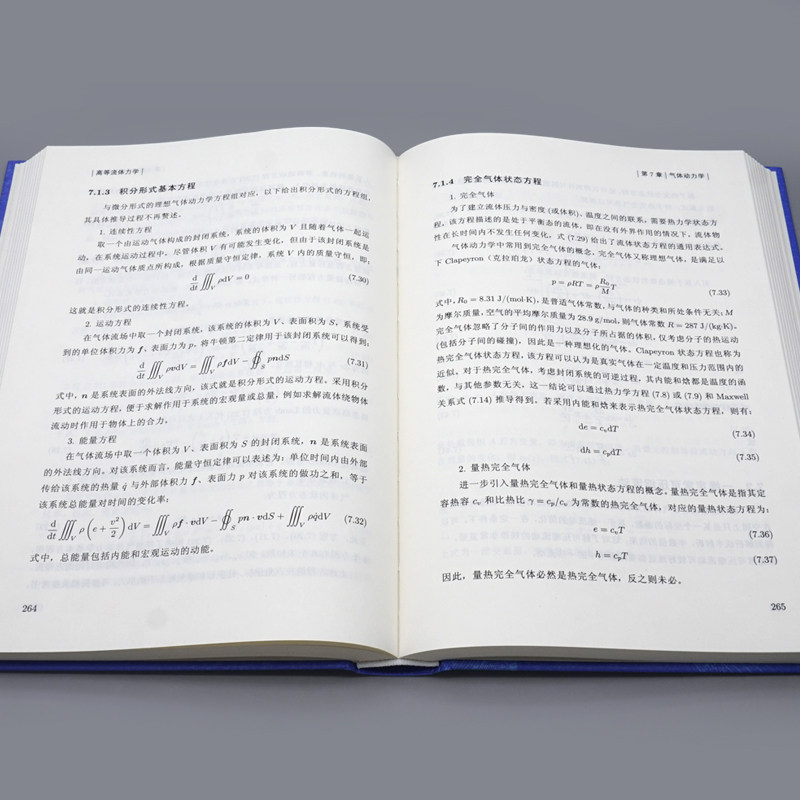 高等流体力学
7.1.3 积分形式基本方程
与微分形式的理想气体动力学方程组对应，以下给出积分形式的方程组，
其具体推导过程不再赘述。
1. 连续性方程
取一个由运动气体构成的封闭系统，系统的体积为 V 且随着气体一起运
动，在系统运动过程中，尽管体积 V 有可能发生变化，但由于该封闭系统是
由同一运动气体质点所构成，根据质量守恒定律，系统 V 内的质量守恒，即，
d/dt ∭_V ρdV = 0 (7.30)
这就是积分形式的连续性方程。
2. 运动方程
在气体流场中取一个封闭系统，该系统的体积为 V、表面积为 S，系统受
到的单位体积力为 f、表面力为 p，将牛顿第二定律用于该封闭系统可以得到：
d/dt ∭_V ρvdV = ∭_V ρfdV − ∯_S pndS (7.31)
式中，n 是系统表面的外法线方向，该式就是积分形式的运动方程，采用积分
形式的运动方程，便于求解作用于系统的宏观量或总量，例如求解流体绕物体
流动时作用于物体上的合力。
3. 能量方程
在气体流场中取一个体积为 V、表面积为 S 的封闭系统，n 是系统表面
的外法线方向。对该系统而言，能量守恒定律可以表述为：单位时间内由外部
传给该系统的热量 q̇ 与外部体积力 f、表面力 p 对该系统的做功之和，等于
该系统总能量对时间的变化率：
d/dt ∭_V ρ(e + v²/2) dV = ∭_V ρf · vdV − ∯_S pn · vdS + ∭_V ρq̇dV (7.32)
式中，总能量包括内能和宏观运动的动能。
264
第 7 章 气体动力学
7.1.4 完全气体状态方程
1. 完全气体
为了建立流体压力与密度 (或体积)、温度之间的联系，需要热力学状态方
程，该方程描述的是处于平衡态的流体，即在没有外界作用的情况下，流体物
性在长时间内不发生任何变化。式 (7.29) 给出了流体状态方程的通用表达式。
气体动力学中常用到完全气体的概念，完全气体又称理想气体，是满足以
下 Clapeyron（克拉珀龙）状态方程的气体，
p = ρRT = ρ R₀/M T (7.33)
式中，R₀ = 8.31 J/(mol·K)，是普适气体常数，与气体的种类和所处条件无关；M
为摩尔质量，空气的平均摩尔质量为 28.9 g/mol，则气体常数 R = 287 J/(kg·K)，
完全气体忽略了分子间的作用力以及分子所占据的体积，仅考虑分子的热运动
(包括分子间的碰撞)，因此是一种理想化的气体，Clapeyron 状态方程也称为
热完全气体状态方程，该方程可以认为是真实气体在一定温度和压力范围内的
近似。对于热完全气体，考虑封闭系统的可逆过程，其内能和焓都是温度的函
数，与其他参数无关，这一结论可以通过热力学方程 (7.8) 或 (7.9) 和 Maxwell
关系式 (7.14) 推导得到。若采用内能和焓来表示热完全气体状态方程，则有：
de = cᵥdT (7.34)
dh = cₚdT (7.35)
2. 量热完全气体
进一步引入量热完全气体和量热状态方程的概念，量热完全气体是指其定
容热容 cᵥ 和比热比 γ = cₚ/cᵥ 为常数的热完全气体，对应的量热状态方程为：
e = cᵥT (7.36)
h = cₚT (7.37)
因此，量热完全气体必然是热完全气体，反之则未必。
265